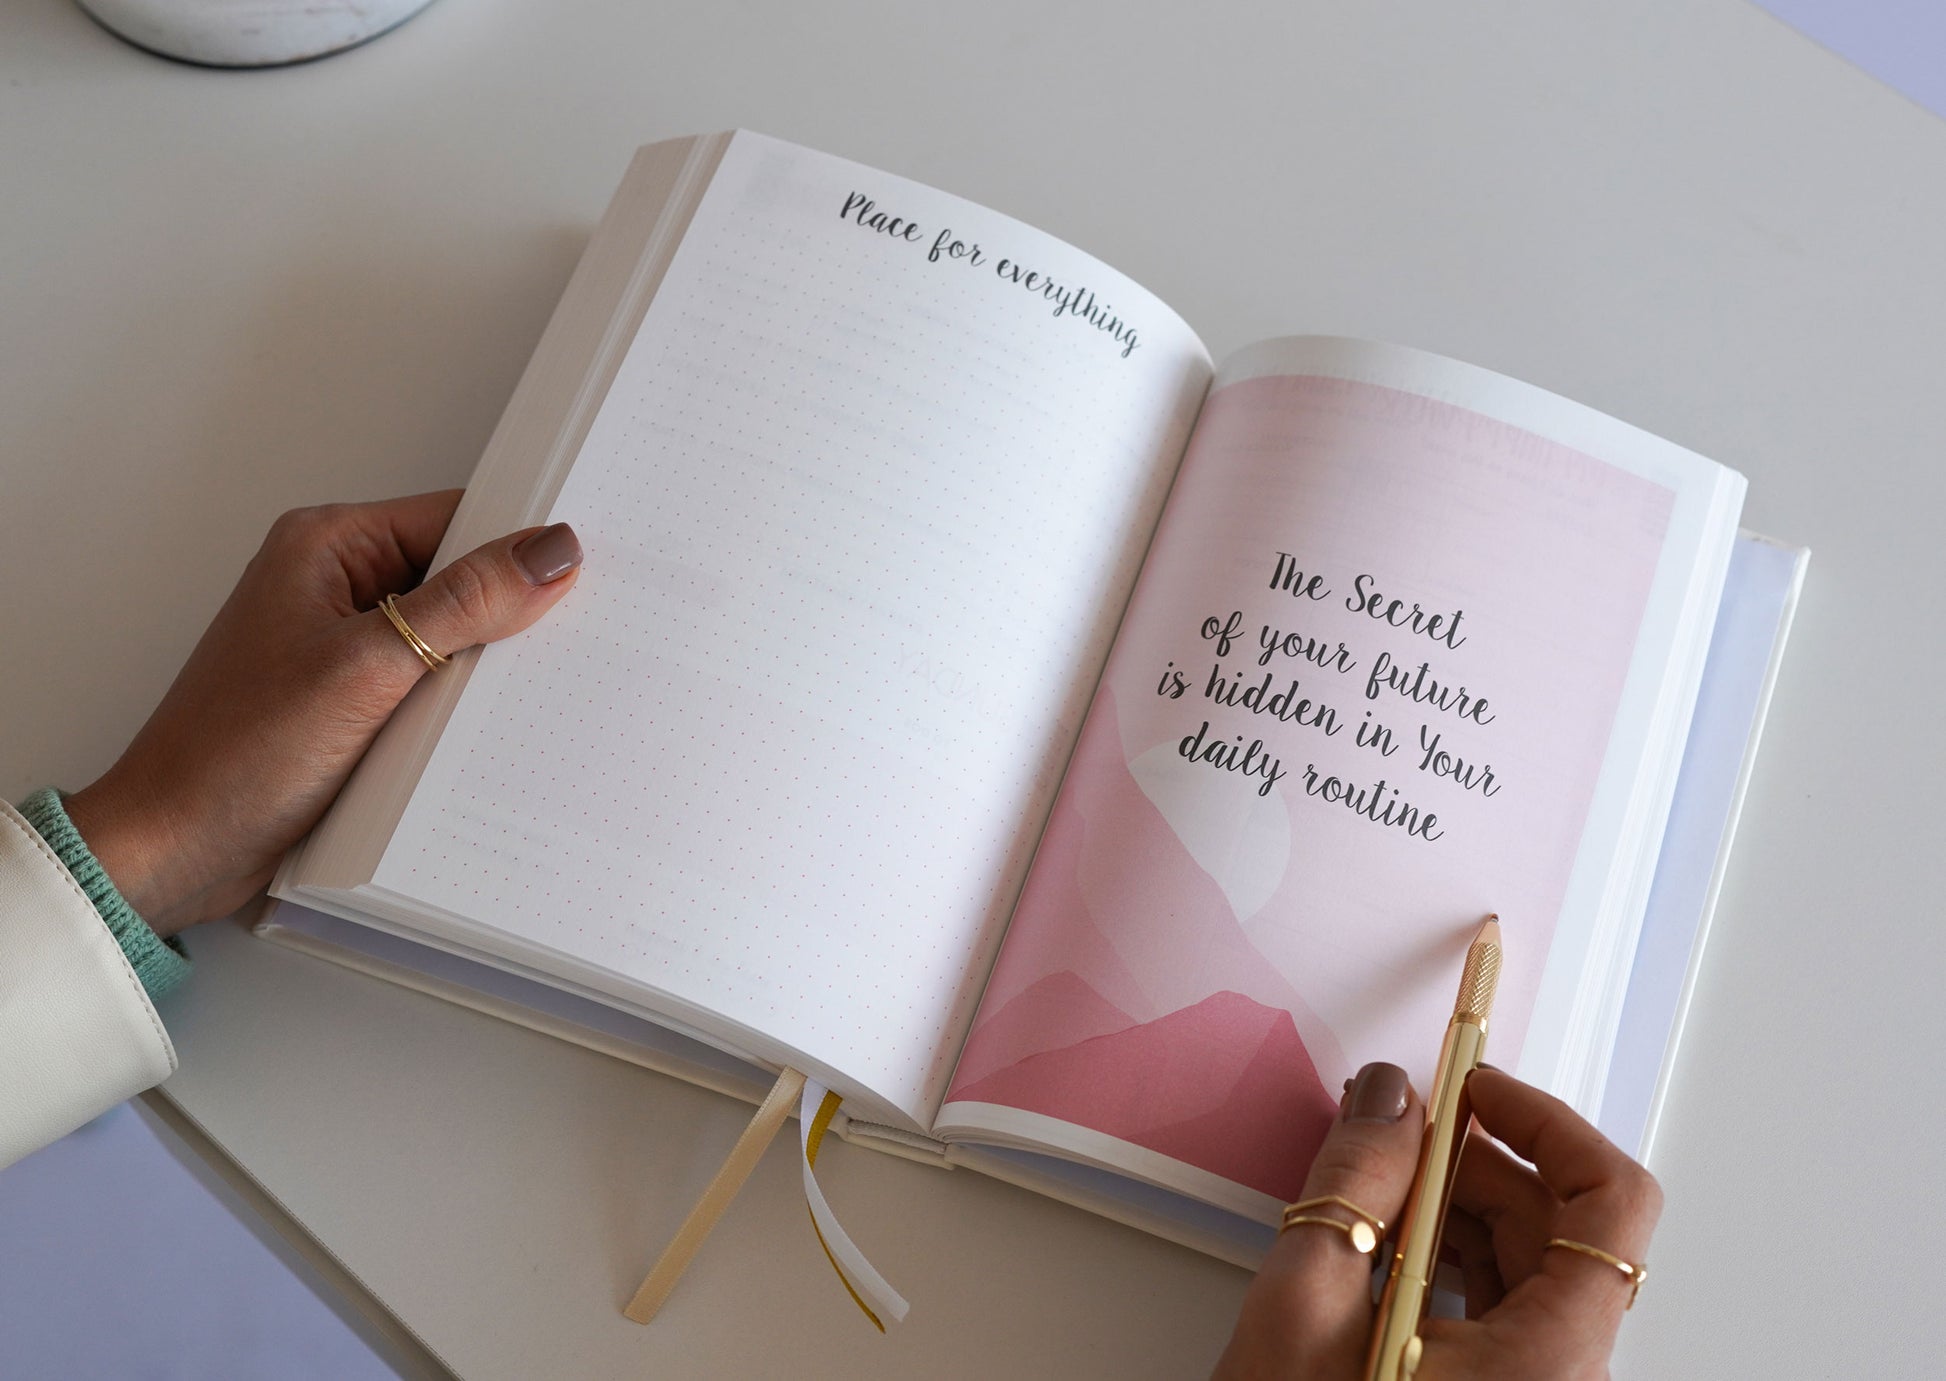 Place for everything
The Secret
of your future
is hidden in Your
daily routine